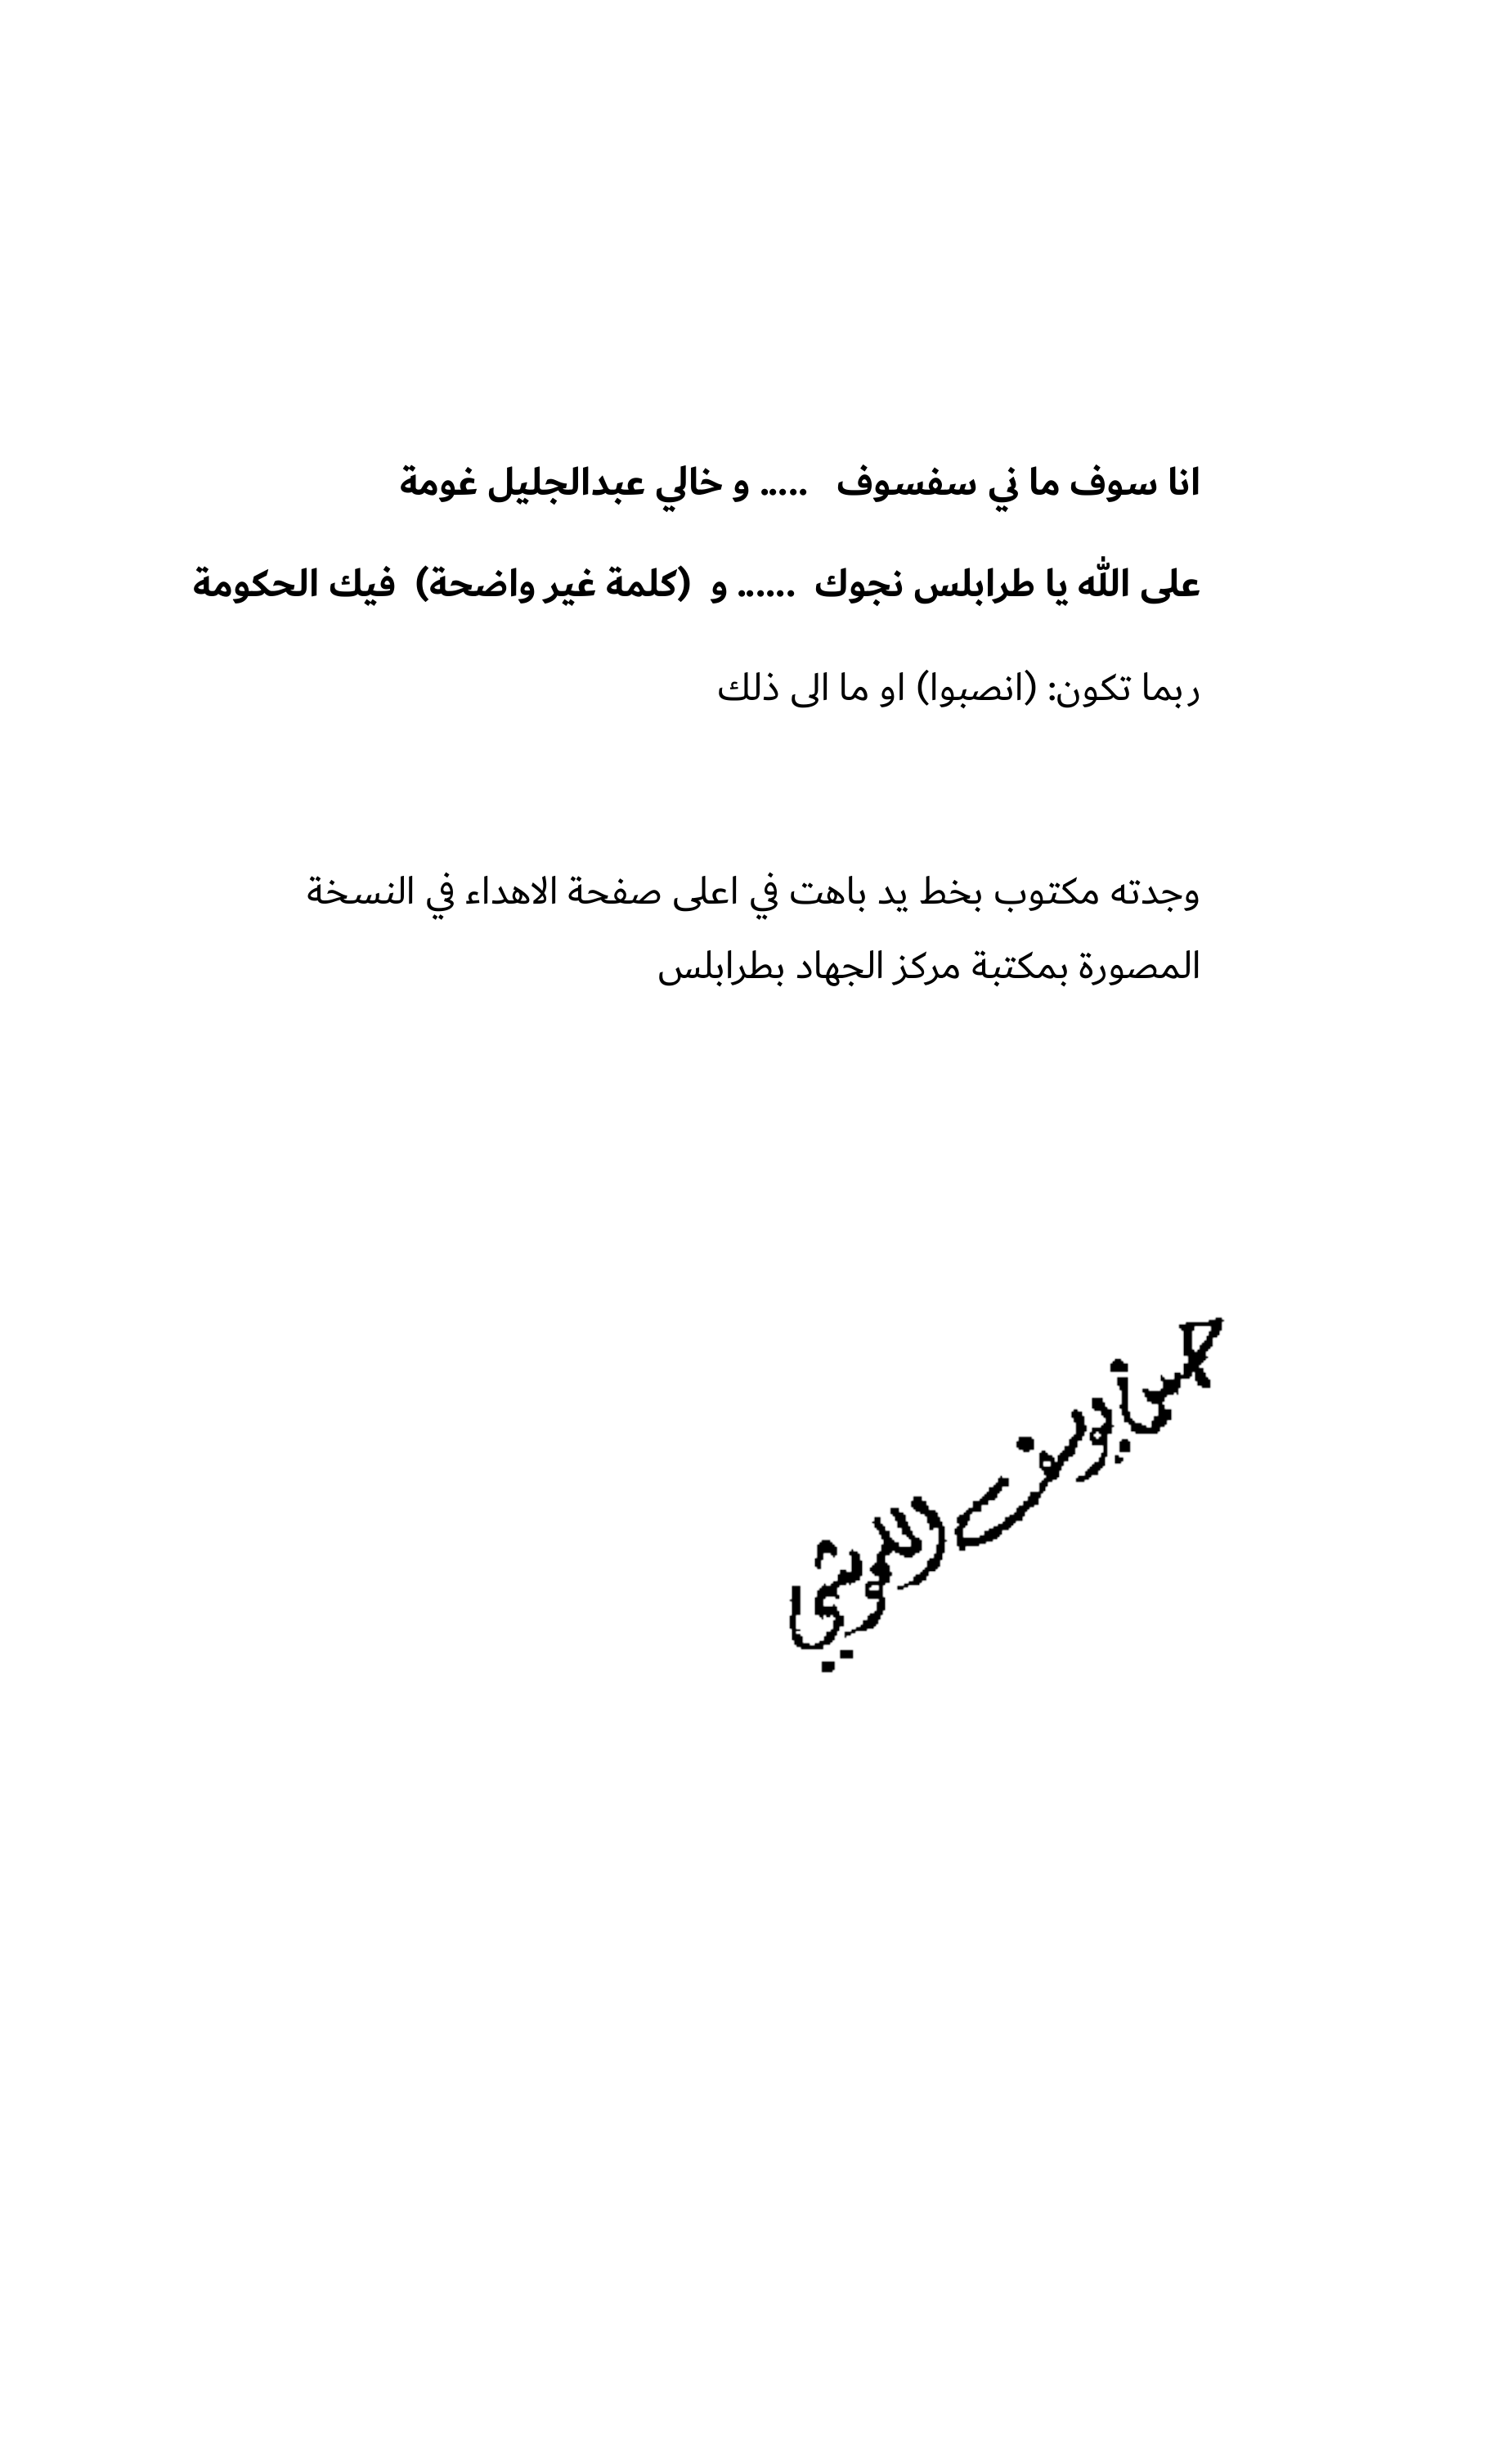 انا سوف ما ني سفسوف ..... و خالي عبدالجليل غومة
على الله يا طرابلس نجوك ...... و (كلمة غير واضحة) فيك الحكومة
ربما تكون: (انصبوا) او ما الى ذلك
وجدته مكتوب بخط يد باهت في اعلى صفحة الاهداء في النسخة
المصورة بمكتبة مركز الجهاد بطرابلس